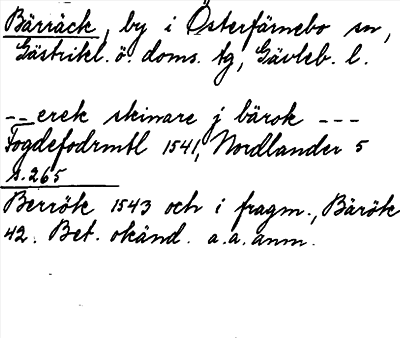 Bärräck, by i Österfärnebo sn,
Gästrikl. ö. doms. tg, Gävleb. l.
--erek skinare j bärok ---
Fogdefodrmtl 1541, Nordlander 5
s. 265
Berrök 1543 och i fragm., Bärök
42. Bet. okänd. a.a. anm.